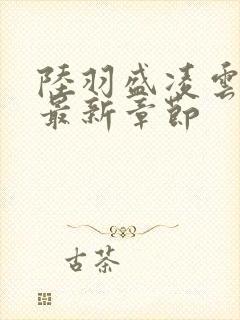 陸羽盛凌雲
最新章節
古茶